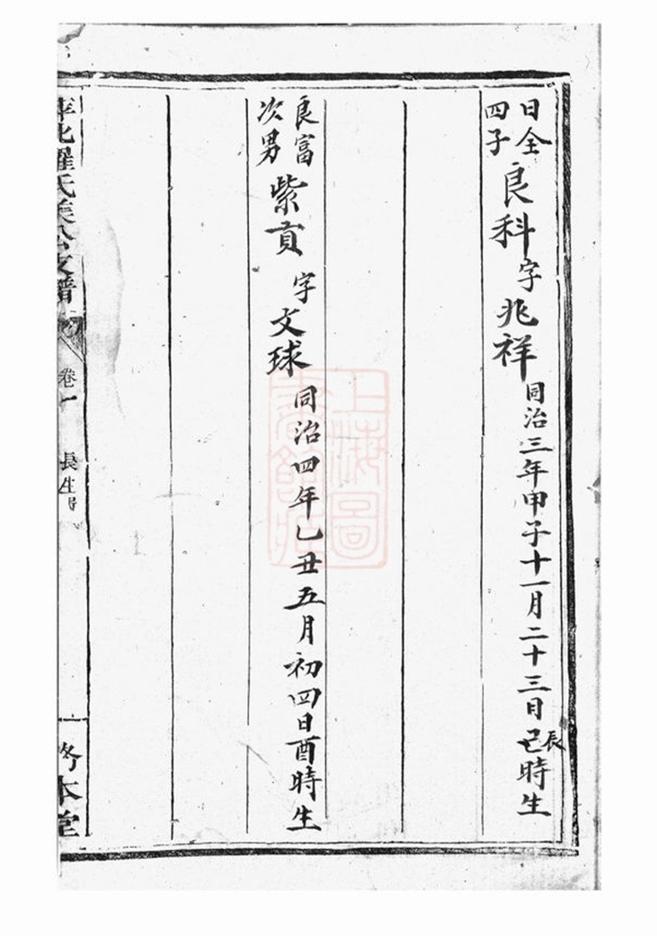 日全
四子
良科字兆祥同治三年甲子十一月二十三日巳辰時生
良富
次男
紫貢字文球同治四年乙丑五月初四日酉時生
羅氏美公支譜
卷一
長生
一
本堂
上海圖
書館藏